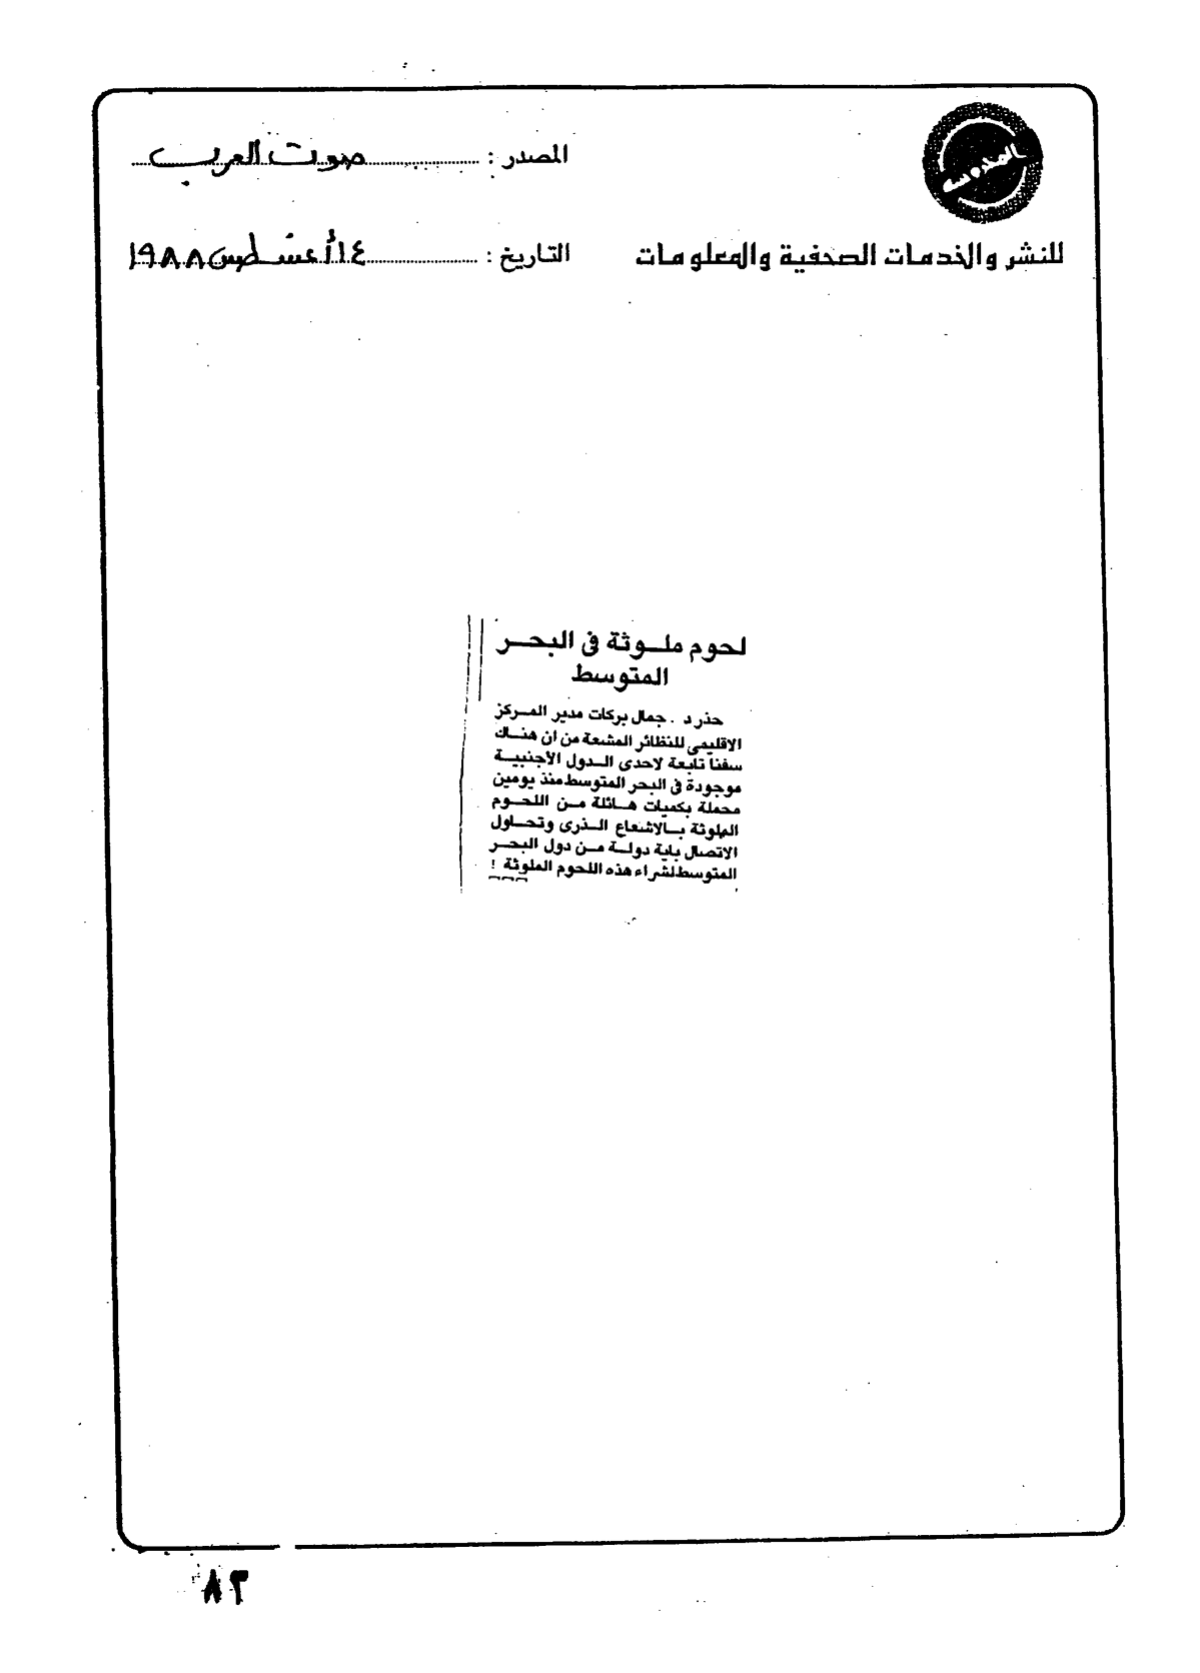 المصدر : صوت العرب
للنشر والخدمات الصحفية والمعلومات
التاريخ : ١٤ أغسطس ١٩٨٨
لحوم ملوثة فى البحر
المتوسط
حذر د . جمال بركات مدير المركز
الاقليمى للنظائر المشعة من ان هناك
سفنا تابعة لاحدى الدول الأجنبية
موجودة فى البحر المتوسط منذ يومين
محملة بكميات هائلة من اللحوم
الملوثة بالاشعاع الذرى وتحاول
الاتصال باية دولة من دول البحر
المتوسط لشراء هذه اللحوم الملوثة !